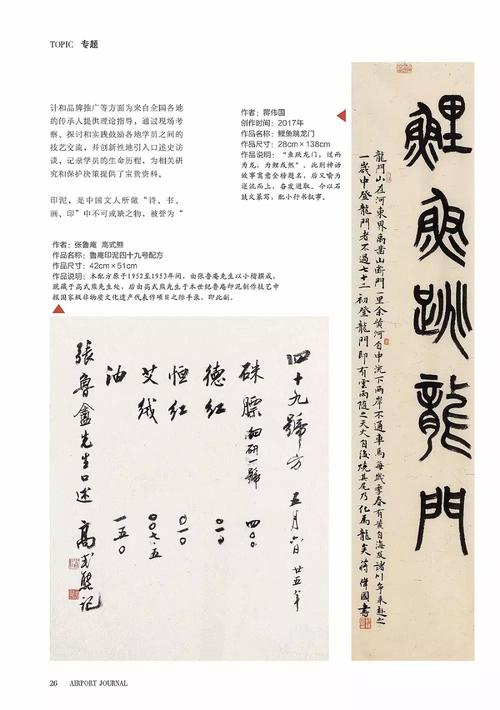 TOPIC 专题
计和品牌推广等方面为来自全国各地
的传承人提供理论指导，通过现场考
察、探讨和实践鼓励各地学员之间的
技艺交流，并创新性地引入口述史访
谈，记录学员的生命历程，为相关研
究和保护决策提供了宝贵资料。
印泥，是中国文人所做“诗、书、
画、印”中不可或缺之物，被誉为“
作者：张鲁庵 高式熊
作品名称：鲁庵印泥四十九号配方
作品尺寸：42cm×51cm
作品说明：本配方原于1952至1953年间，由张鲁庵先生以小楷撰成，
既藏于高式熊先生处，后由高式熊先生于本世纪鲁庵印泥制作技艺申
报国家级非物质文化遗产代表作项目之际手录，即此副。
作者：蒋伟国
创作时间：2017年
作品名称：鲤鱼跳龙门
作品尺寸：28cm×138cm
作品说明：“鱼跃龙门，过而
为龙，为鲤成然”，此则神话
故事寓意金榜题名，后又喻为
逆流而上，奋发进取，今以石
鼓文篆写，配小行书叙事。
四十九號方 五月六日 廿五年
硃膘 四〇〇
德紅
恒紅
艾绒 〇〇七·五
油 一五〇
張魯盦先生口述 高式熊记
鯉魚跳龍門
龍門山在河東界禹鑿山断門一里余黄河自中流下两岸不通車馬每歲季春有黄自海及諸川争来赴之
一歲中登龍門者不過七十二初登龍門即有雲雨随之天火自後燒其尾乃化爲龍矣蒋偉國書
26 AIRPORT JOURNAL